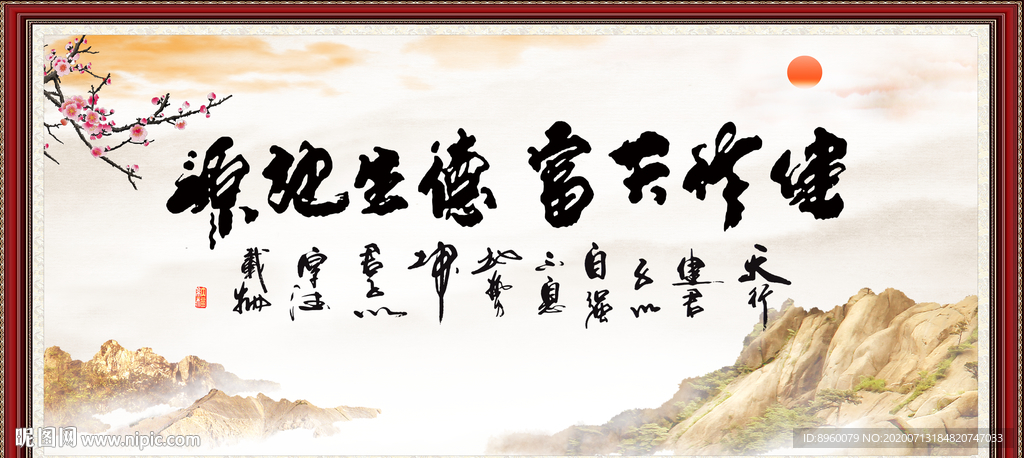 健行天富德生地源
天行
健君
子以
自强
不息
地势
坤
君子以
厚德
載物
昵图网 www.nipic.com
ID:8960079 NO:20200713184820747033